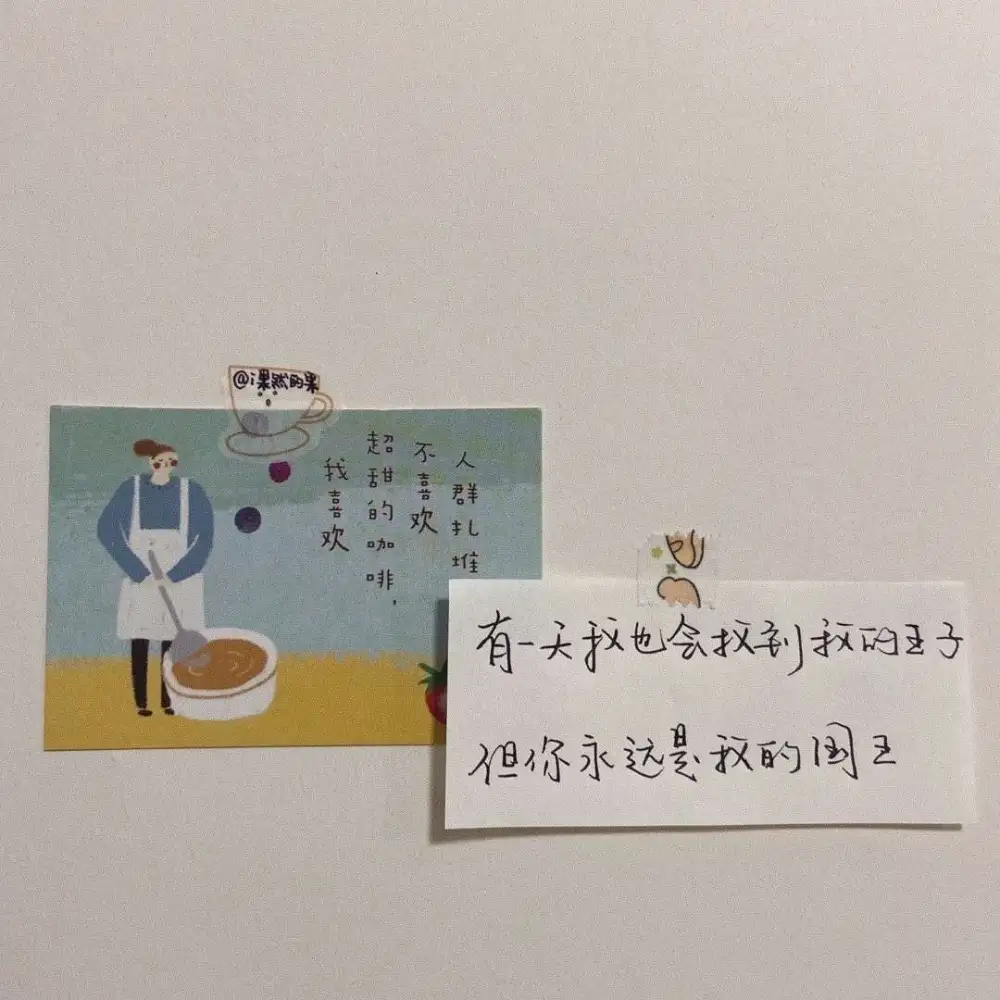 @i果然的果
人群扎堆
不喜欢
超甜的咖啡,
我喜欢
有一天我也会找到我的王子
但你永远是我的国王